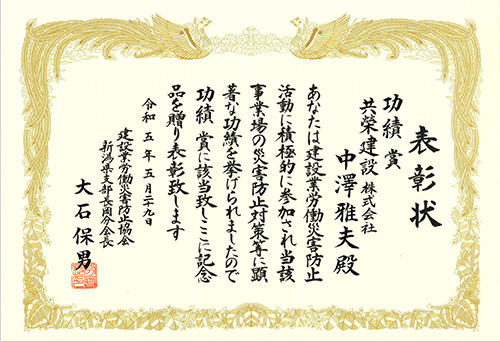 表彰状
功績賞
共榮建設株式会社
中澤雅夫殿
あなたは建設業労働災害防止
活動に積極的に参加され当該
事業場の災害防止対策等に顕
著な功績を挙げられましたので
功績賞に該当致しここに記念
品を贈り表彰致します
令和五年五月二九日
建設業労働災害防止協会
新潟県支部長岡分会長
大石保男